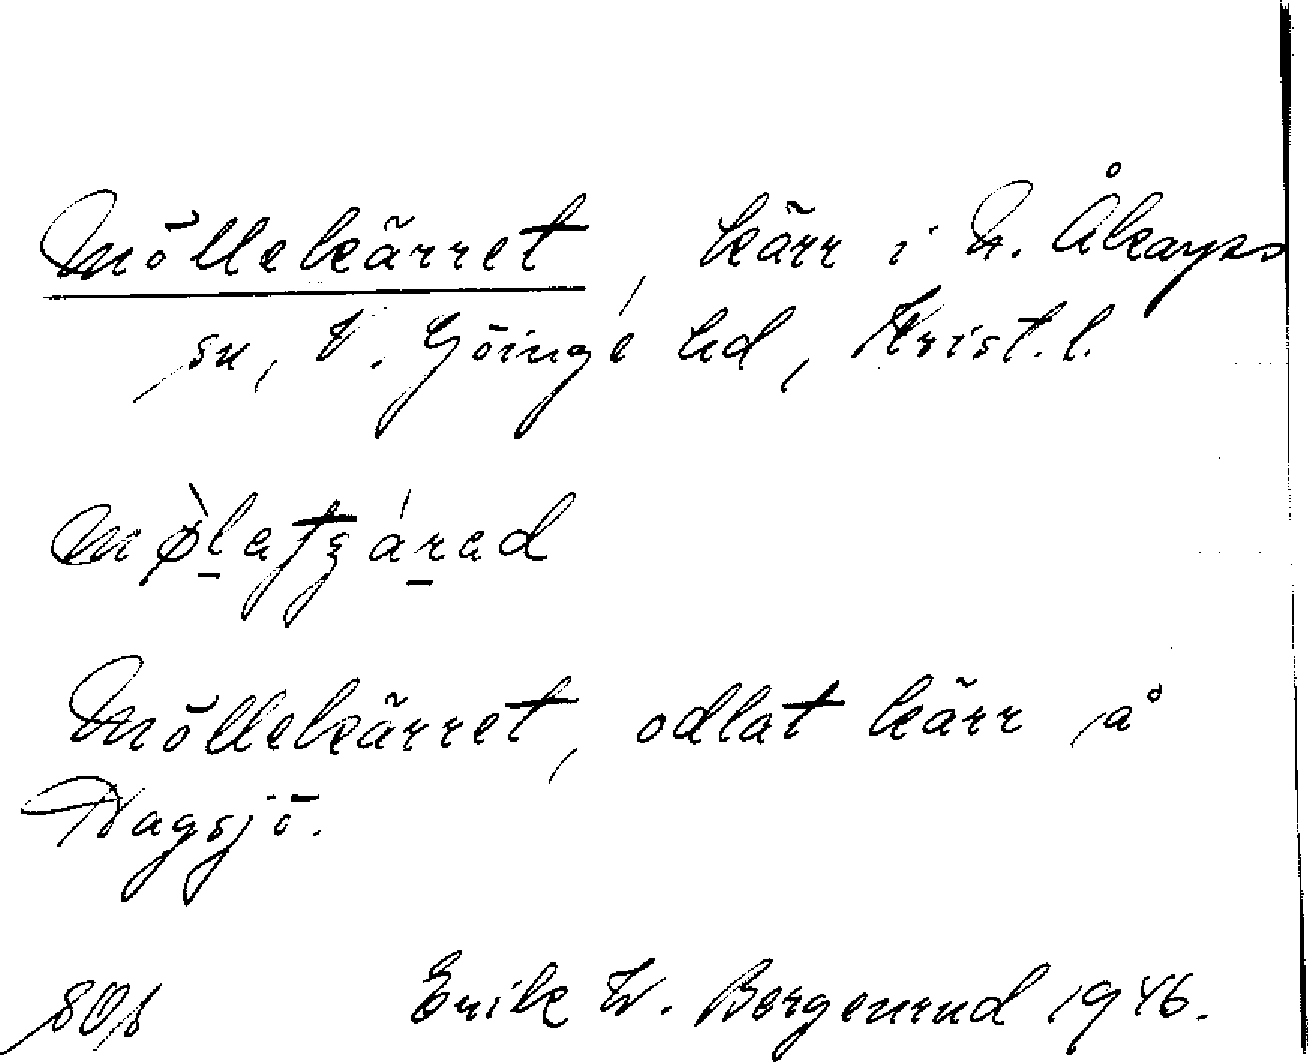 Möllekärret, kärr i N. Åkarps
sn, V. Göinge hd, Krist. l.
Möllekärret, odlat kärr på
Hagsjö.
Erik W. Bergenrud 1946.